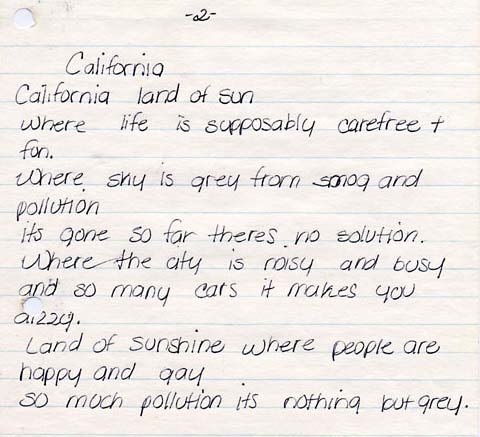 -2-
California
California land of sun
where life is supposably carefree +
fun.
Where sky is grey from smog and
pollution
its gone so far theres no solution.
Where the city is noisy and busy
and so many cars it makes you
dizzy.
Land of sunshine where people are
happy and gay
so much pollution its nothing but grey.